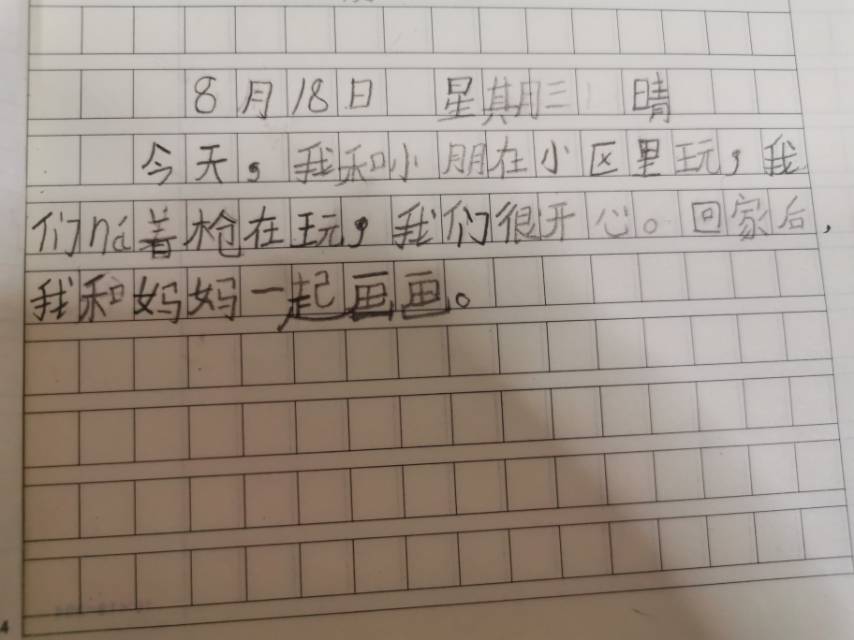 8月18日 星期三 晴
今天，我和小朋在小区里玩，我
们ná着枪在玩，我们很开心。回家后，
我和妈妈一起画画。
4